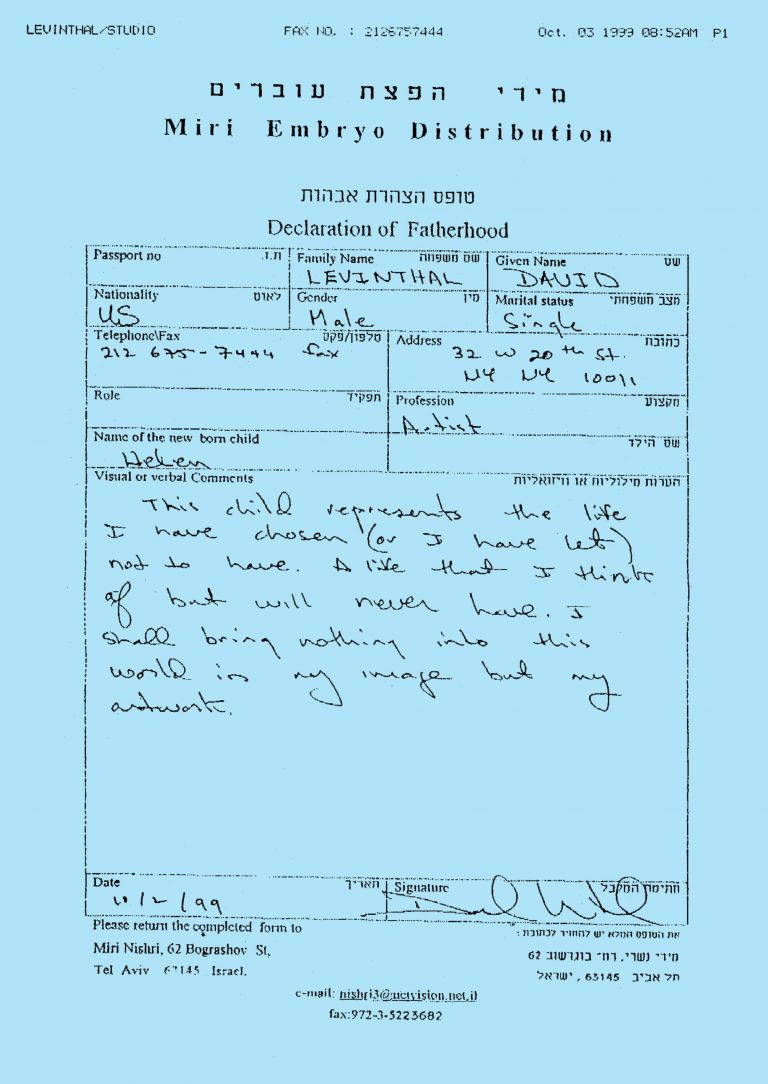 LEVINTHAL/STUDIO FAX NO. : 2126757444 Oct. 03 1999 08:52AM P1
מידי הפצת עוברים
Miri Embryo Distribution
טופס הצהרת אבהות
Declaration of Fatherhood
Passport no ת.ז. Family Name שם משפחה Given Name שם
LEVINTHAL DAVID
Nationality לאום Gender מין Marital status מצב משפחתי
US Male Single
Telephone\Fax טלפון/פקס Address כתובת
212 675-7444 fax 32 W 20th St.
NY NY 10011
Role תפקיד Profession מקצוע
Artist
Name of the new born child שם הילד
Helen
Visual or verbal Comments הערות מילוליות או וויזואליות
This child represents the life
I have chosen (or I have let)
not to have. A life that I think
of but will never have. I
shall bring nothing into this
world in my image but my
artwork.
Date תאריך Signature חתימת המקבל
10/2/99
Please return the completed form to את הטופס המלא יש להחזיר לכתובת:
Miri Nishri, 62 Bograshov St, מידי נשרי, רח' בוגרשוב 62
Tel Aviv 67145 Israel. תל אביב 63145, ישראל
e-mail: nishri3@netvision.net.il
fax:972-3-5223682